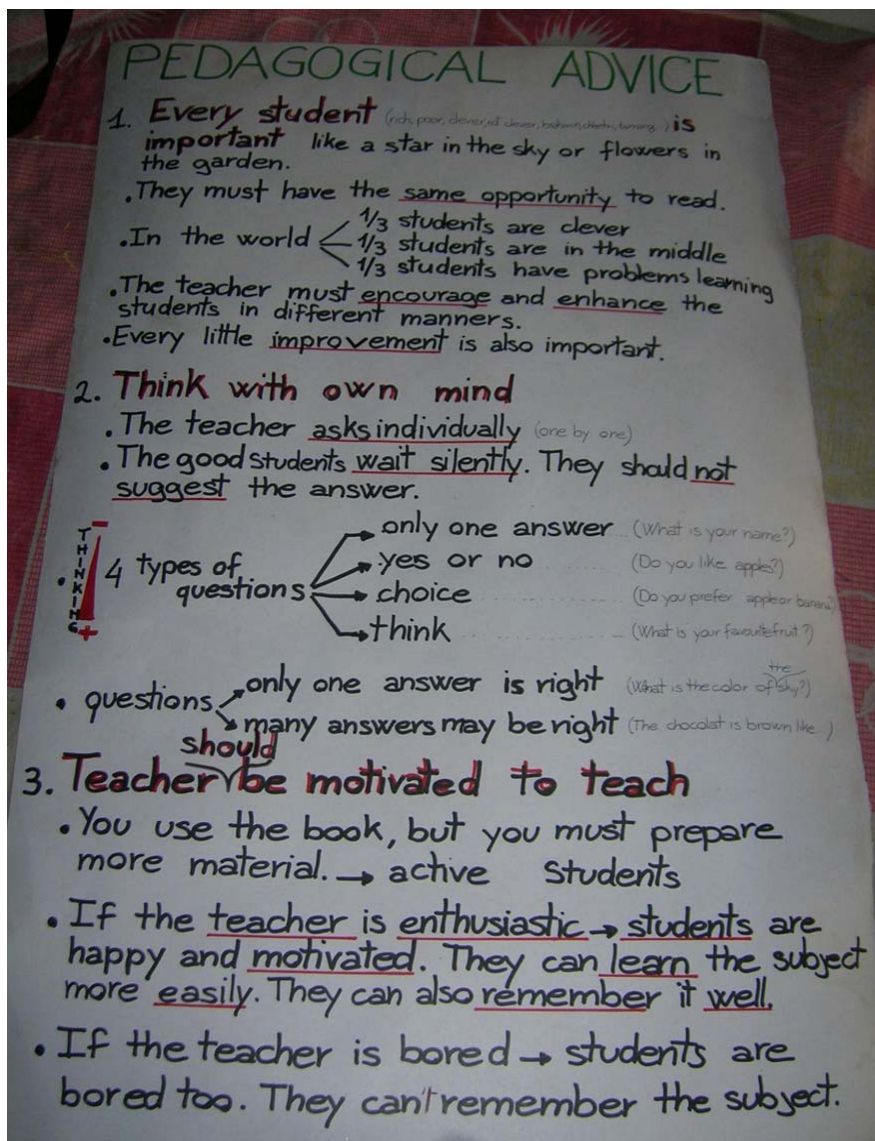 PEDAGOGICAL ADVICE
1. Every student (rich, poor, clever, not clever, ) is
important like a star in the sky or flowers in
the garden.
• They must have the same opportunity to read.
1/3 students are clever
• In the world 1/3 students are in the middle
1/3 students have problems learning
• The teacher must encourage and enhance the
students in different manners.
• Every little improvement is also important.
2. Think with own mind
• The teacher asks individually (one by one)
• The good students wait silently. They should not
suggest the answer.
only one answer (What is your name?)
• THINKING - + 4 types of yes or no (Do you like apples?)
questions choice (Do you prefer apple or banana?)
think (What is your favourite fruit?)
• questions only one answer is right (What is the color of the sky?)
many answers may be right (The chocolat is brown like..)
3. Teacher should be motivated to teach
• You use the book, but you must prepare
more material. → active students
• If the teacher is enthusiastic → students are
happy and motivated. They can learn the subject
more easily. They can also remember it well.
• If the teacher is bored → students are
bored too. They can't remember the subject.